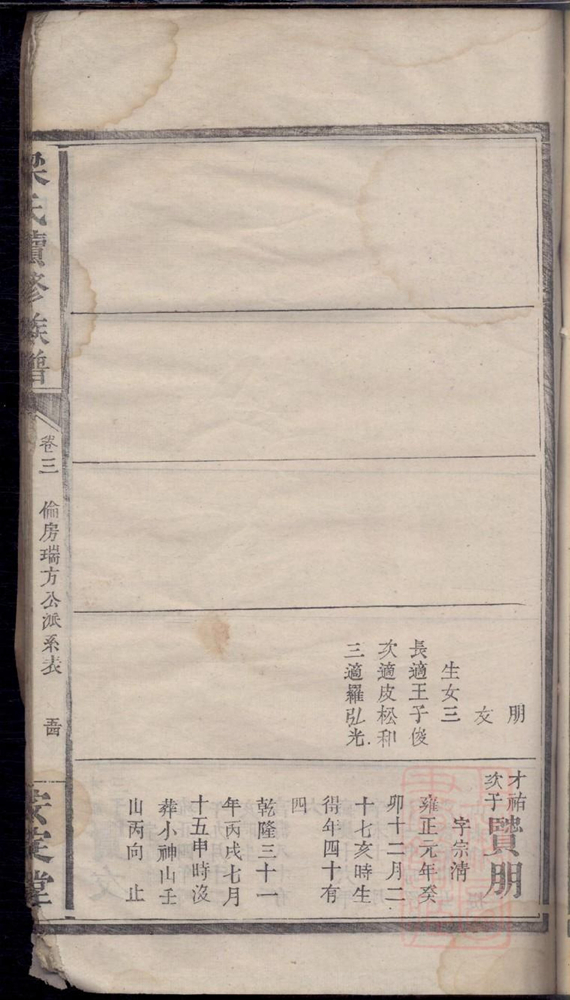 朋
友
生女三
長適王子俊
次適皮松和
三適羅弘光
才祐
次子
賢朋
字宗清
雍正元年癸
卯十二月二
十七亥時生
得年四十有
四
乾隆三十一
年丙戌七月
十五申時沒
葬小神山壬
山丙向 止
梁氏續修族譜
卷三
倫房瑞方公派系表
安定堂